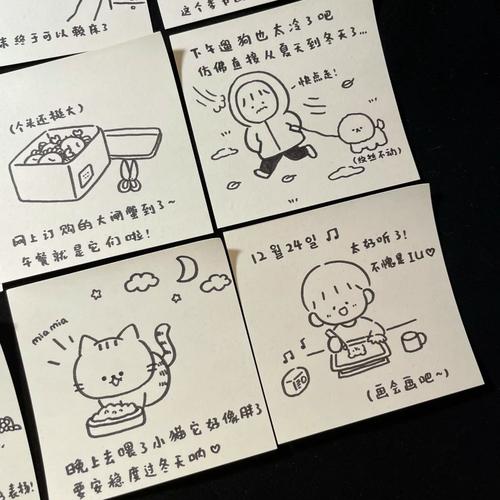 终于可以躺床了
这个季节
(个头还挺大)
网上订购的大闸蟹到了~
午餐就是它们啦!
下午遛狗也太冷了吧
仿佛直接从夏天到冬天了...
快点走!
(纹丝不动)
miamia
晚上去喂了小猫它好像胖了
要安稳度过冬天呐♡
12月24日♫
太好听了!
不愧是IU♡
(画会画吧~)